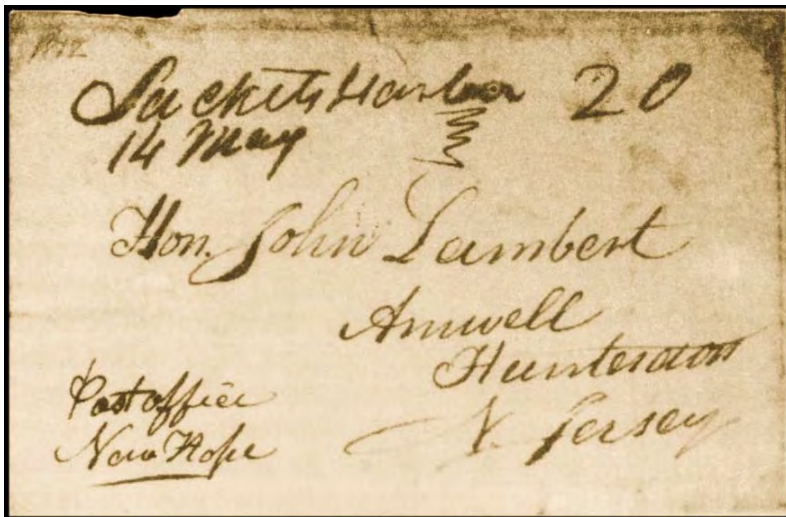 1812
Sackets Harbor 20
14 May
Hon. John Lambert
Amwell
Hunterdon
N. Jersey
Post office
New Hope